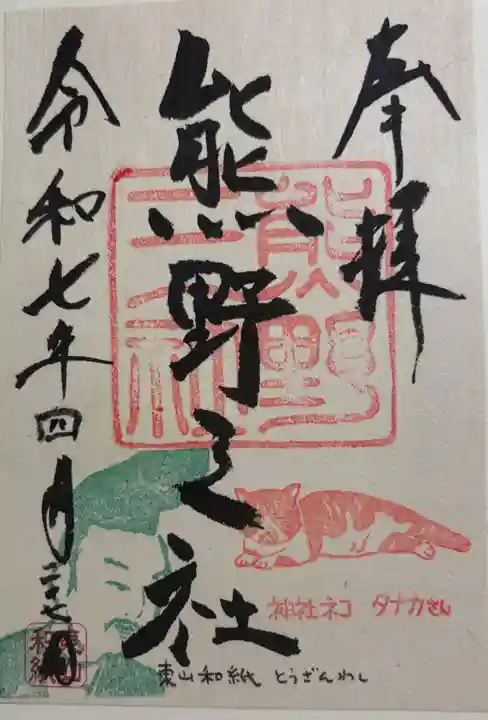 奉拝
熊野
三社
熊野之社
令和七年四月二十七日
神社ネコ タナカさん
東山和紙 とうざんわし
東山
和紙